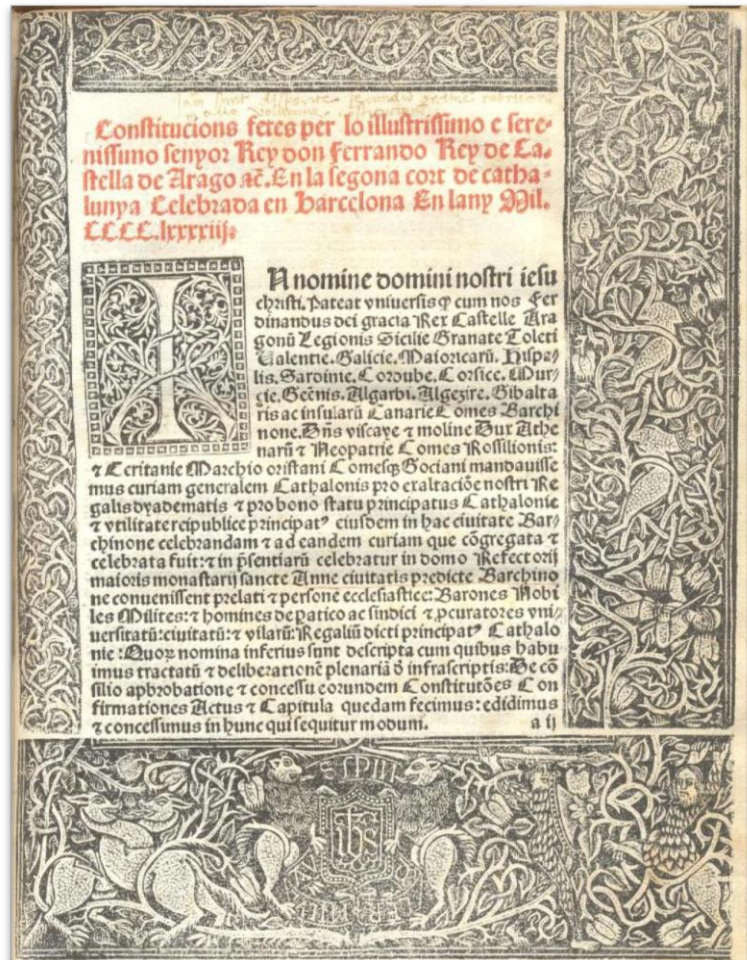 Constitucions fetes per lo illustrissimo e sere-
nissimo senyor Rey don ferrando Rey de Ca-
stella de Arago ⁊c̃. En la segona cort de catha-
lunya Celebrada en Barcelona En lany Mil.
CCCC.lxxxxiij.
IN nomine domini nostri iesu
christi. Pateat vniuersis ꝙ cum nos Fer
dinandus dei gracia Rex Castelle Ara
gonũ Legionis Sicilie Granate Toleti
Ualentie. Galicie. Maioricarũ. Hispa
lis. Sardinie. Cordube. Corsice. Mur-
cie. Geẽnis. Algarbi. Algezire. Gibalta
ris ac insularũ Canarie Comes Barchi
none. Dñs viscaye ⁊ moline Dux Athe
narũ ⁊ Neopatrie Comes Rossilionis:
⁊ Ceritanie Marchio oristani Comesqʒ Gociani mandauisse
mus curiam generalem Cathalonis pro exaltaciõe nostri Re
galis dyadematis ⁊ pro bono statu principatus Cathalonie
⁊ vtilitate reipublice principatꝰ eiusdem in hac ciuitate Bar-
chinone celebrandam ⁊ ad eandem curiam que cõgregata ⁊
celebrata fuit: ⁊ in p̃sentiarũ celebratur in domo Refectorij
maioris monastarij sancte Anne ciuitatis predicte Barchino
ne conuenissent prelati ⁊ persone ecclesiastice: Barones Nobi
les Milites: ⁊ homines de paratico ac sindici ⁊ ꝓcuratores vni-
uersitatũ: ciuitatũ: ⁊ vilarũ: Regaliũ dicti principatꝰ Cathalo
nie: Quoꝝ nomina inferius sunt descripta cum quibus habu
imus tractatũ ⁊ deliberationẽ plenariã ð infrascriptis: De cõ
silio apbrobatione ⁊ concessu eorundem Constitutões Con
firmationes Actus ⁊ Capitula quedam fecimus: edidimus
⁊ concessimus in hunc qui sequitur modum. a ij
ihs